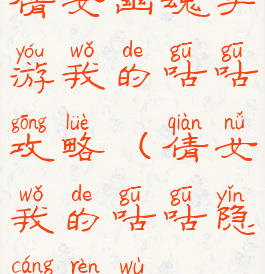 倩女幽魂手
yóu wǒ de gū gū
游我的咕咕
gōng lüè qiàn nǚ
攻略（倩女
wǒ de gū gū yǐn
我的咕咕隐
cáng rèn wù